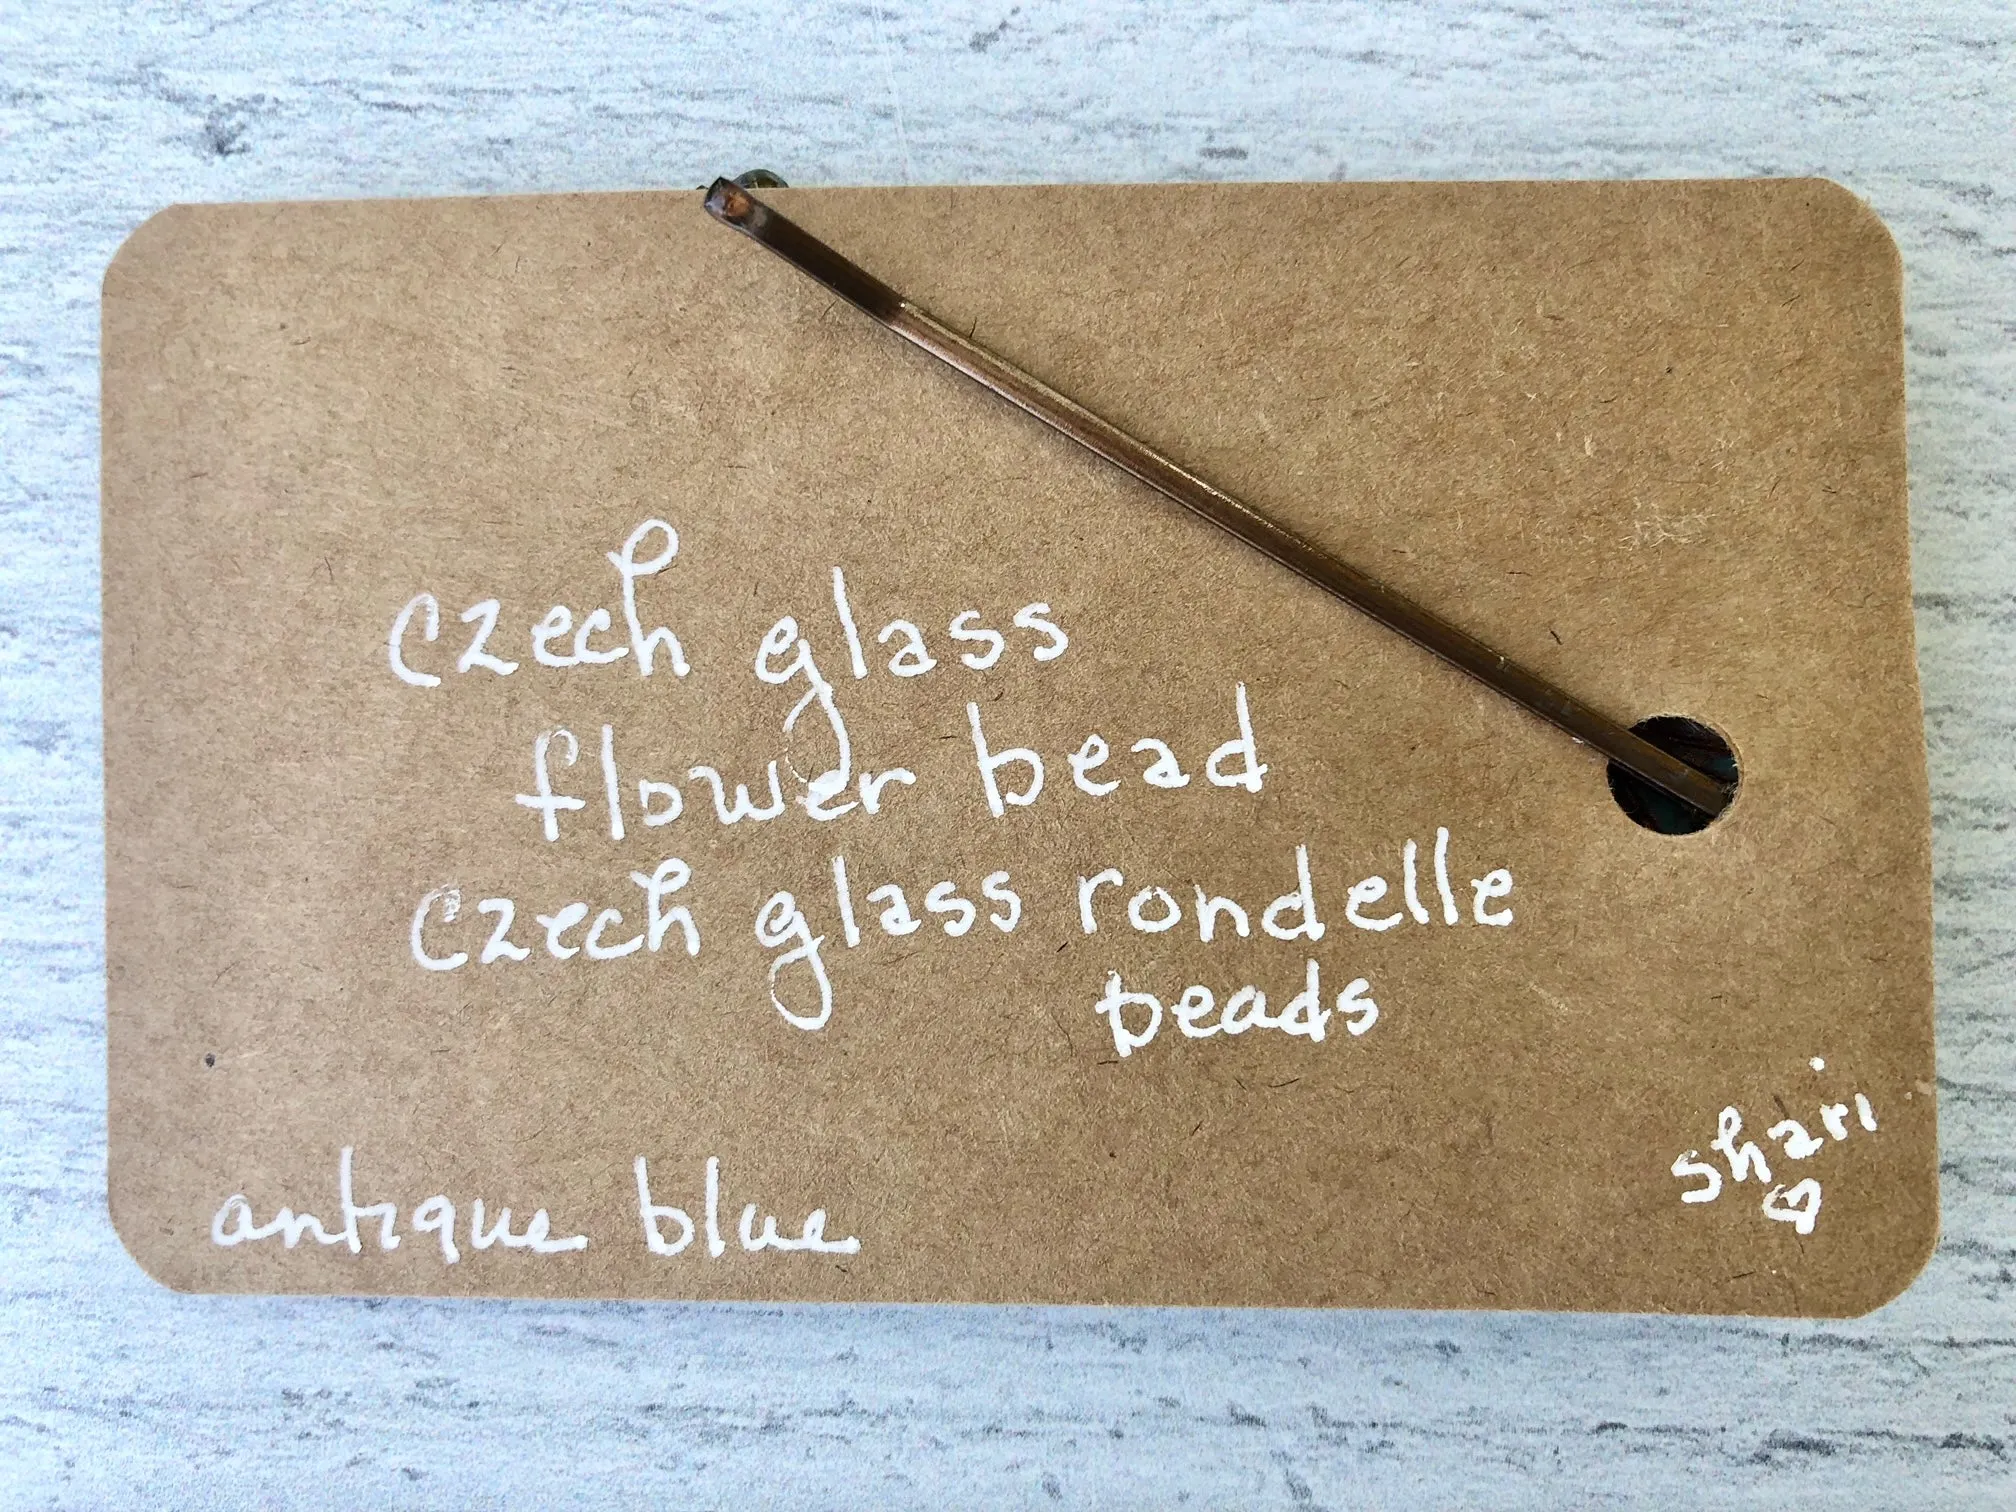 czech glass
flower bead
czech glass rondelle
beads
antique blue
shari